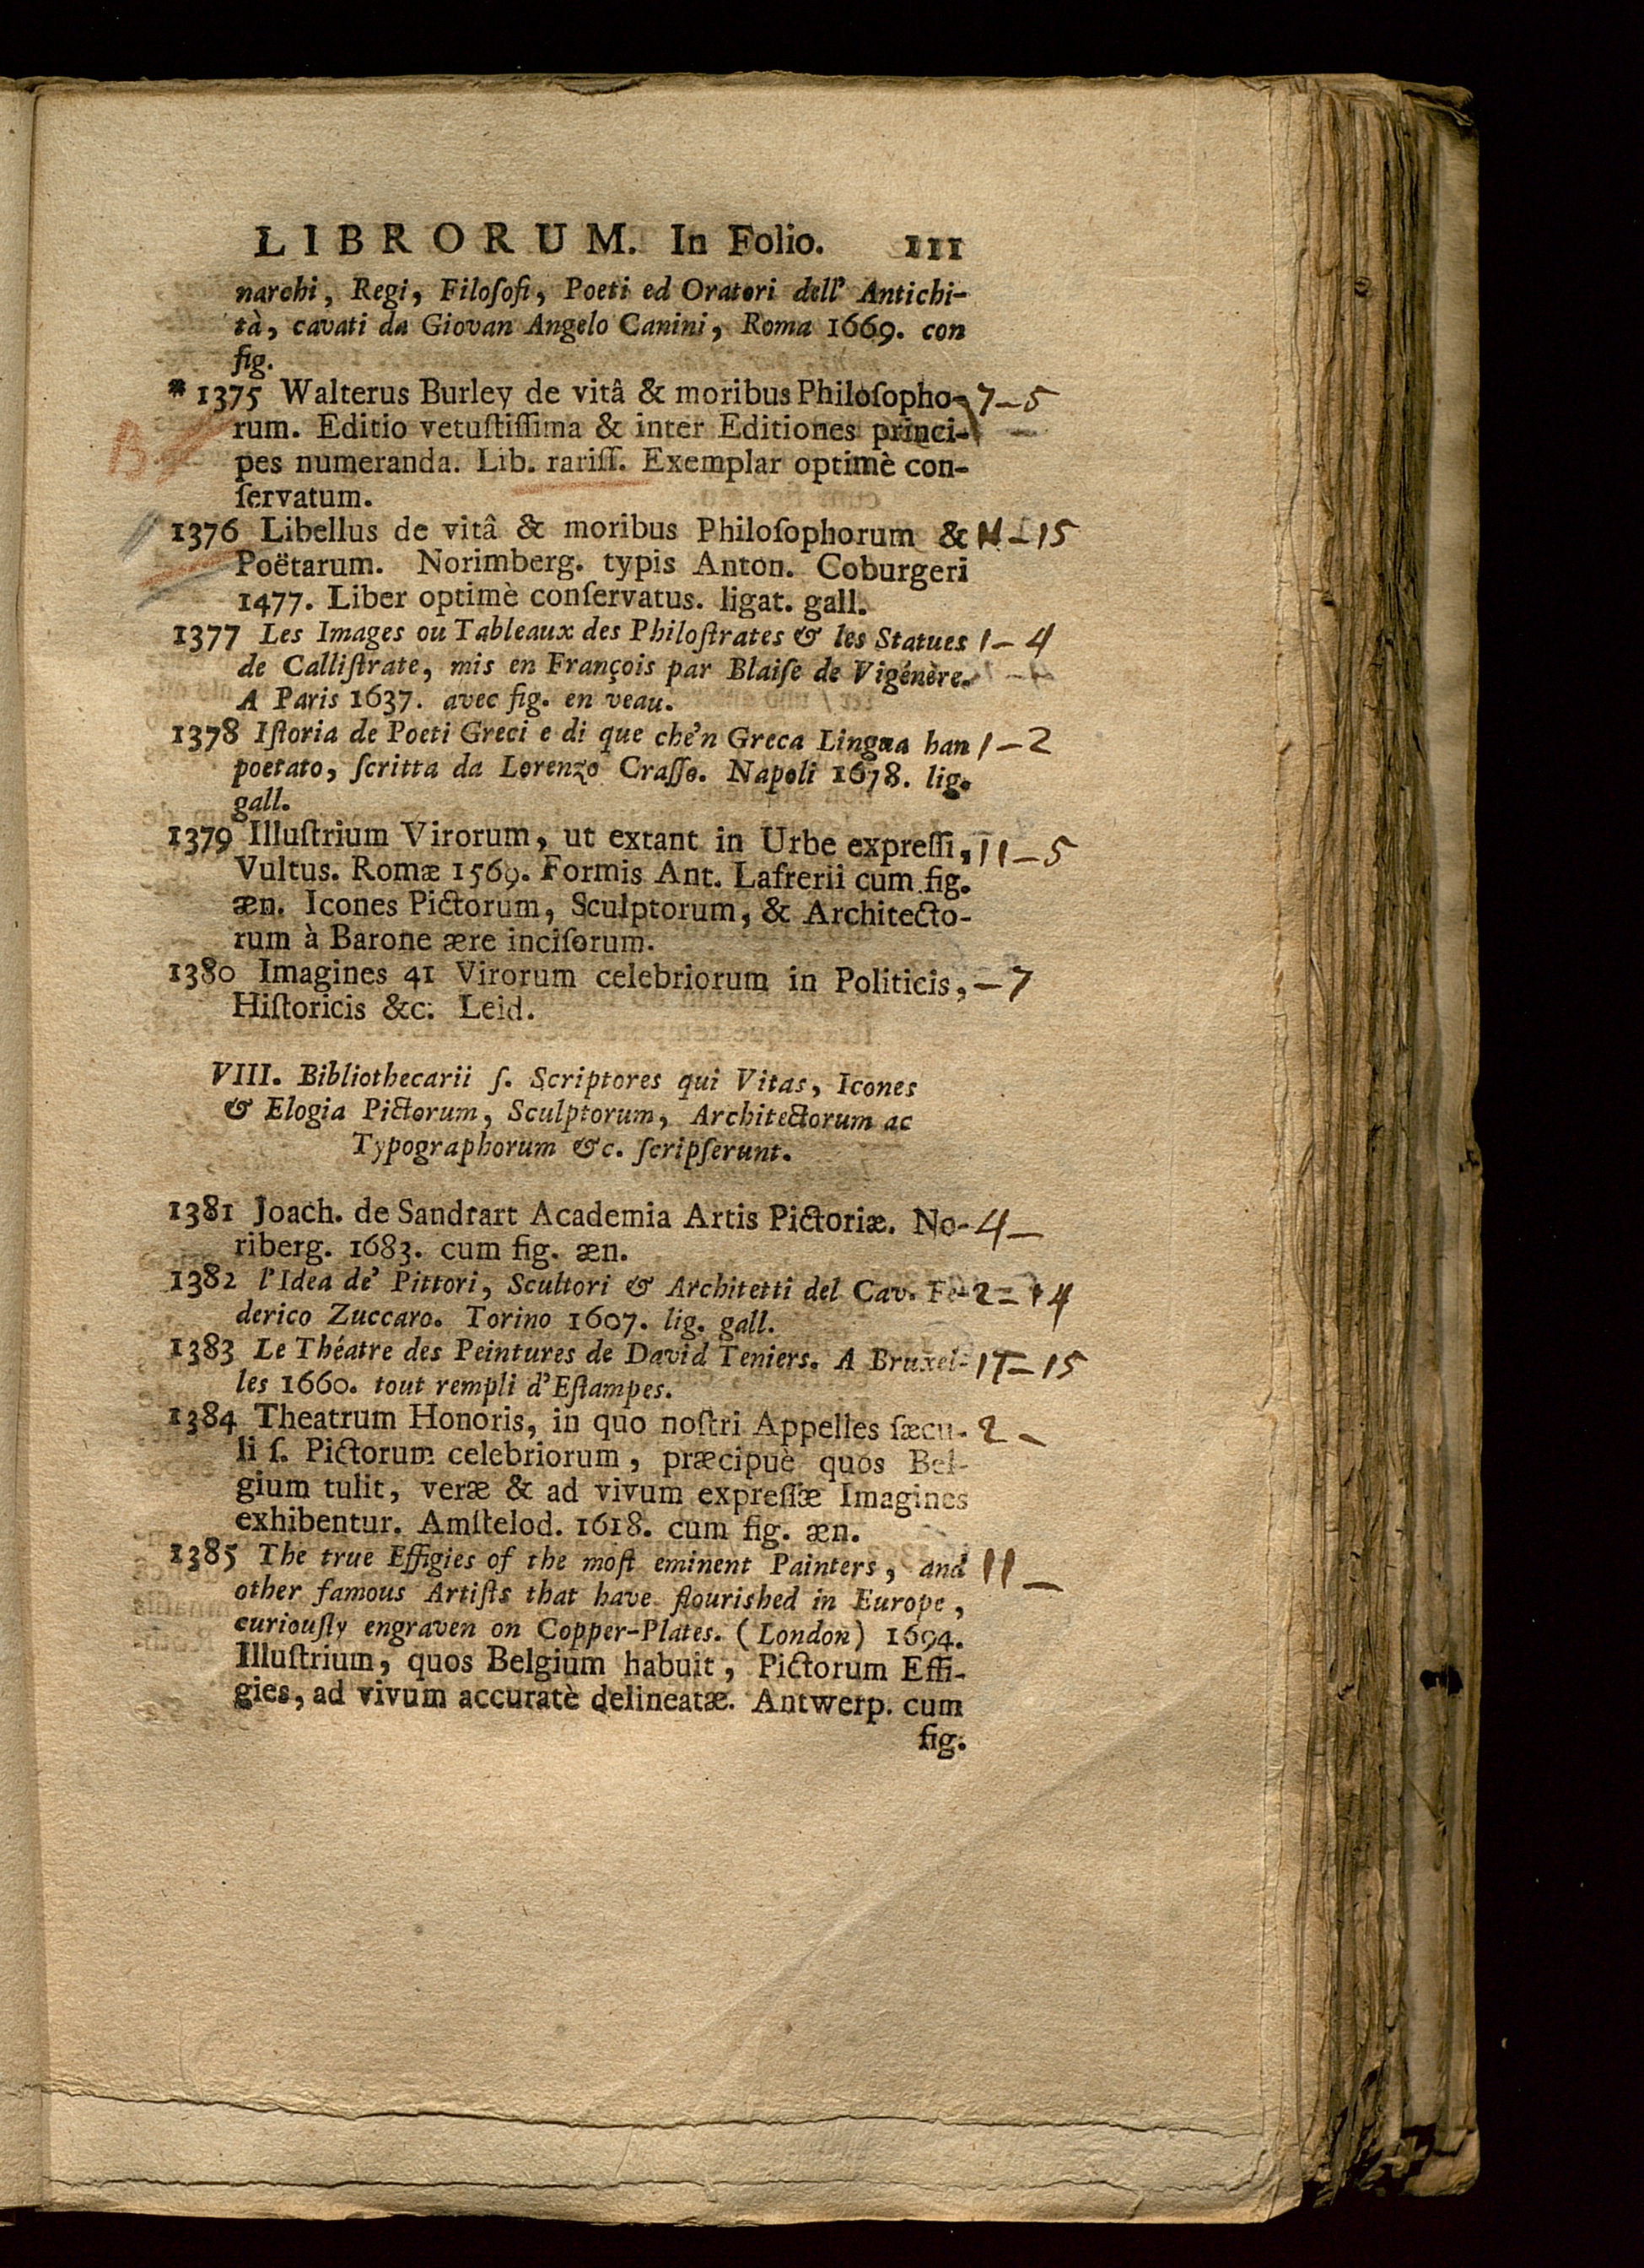 LIBRORUM. In Folio. 111
narchi, Regi, Filoſofi, Poeti ed Oratori dell' Antichi-
tà, cavati da Giovan Angelo Canini, Roma 1669. con
fig.
* 1375 Walterus Burley de vitâ & moribus Philoſopho- 7-5
rum. Editio vetuſtiſſima & inter Editiones princi-
pes numeranda. Lib. rariſſ. Exemplar optimè con-
ſervatum.
1376 Libellus de vitâ & moribus Philoſophorum & -15
Poëtarum. Norimberg. typis Anton. Coburgeri
1477. Liber optimè conſervatus. ligat. gall.
1377 Les Images ou Tableaux des Philoſtrates & les Statues 1-4
de Calliſtrate, mis en François par Blaiſe de Vigénère.
A Paris 1637. avec fig. en veau.
1378 Iſtoria de Poeti Greci e di que che'n Greca Lingua han 1-2
poetato, ſcritta da Lorenzo Craſſo. Napoli 1678. lig.
gall.
1379 Illuſtrium Virorum, ut extant in Urbe expreſſi, 11-5
Vultus. Romæ 1569. Formis Ant. Lafrerii cum fig.
æn. Icones Pictorum, Sculptorum, & Architecto-
rum à Barone ære inciſorum.
1380 Imagines 41 Virorum celebriorum in Politicis, -7
Hiſtoricis &c. Leid.
VIII. Bibliothecarii ſ. Scriptores qui Vitas, Icones
& Elogia Pictorum, Sculptorum, Architectorum ac
Typographorum &c. ſcripſerunt.
1381 Joach. de Sandrart Academia Artis Pictoriæ. No- 4-
riberg. 1683. cum fig. æn.
1382 l'Idea de' Pittori, Scultori & Architetti del Cav. Fe- 2-14
derico Zuccaro. Torino 1607. lig. gall.
1383 Le Théatre des Peintures de David Teniers. A Bruxel- 17-15
les 1660. tout rempli d'Eſtampes.
1384 Theatrum Honoris, in quo noſtri Appelles ſæcu- 2-
li ſ. Pictorum celebriorum, præcipuè quos Bel-
gium tulit, veræ & ad vivum expreſſæ Imagines
exhibentur. Amſtelod. 1618. cum fig. æn.
1385 The true Effigies of the moſt eminent Painters, and 11-
other famous Artiſts that have flourished in Europe,
curiouſly engraven on Copper-Plates. (London) 1694.
Illuſtrium, quos Belgium habuit, Pictorum Effi-
gies, ad vivum accuratè delineatæ. Antwerp. cum
fig.